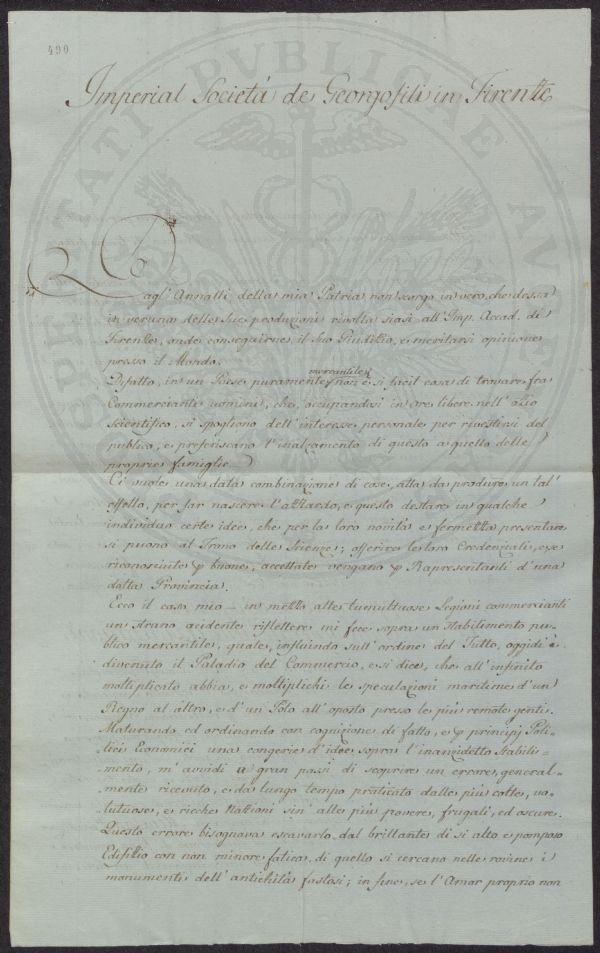 490
Imperial Società de Georgofili in Firenze
Dagl' Annalli della mia Patria non scorgo in vero, che dessa
in veruna delle Sue produzioni rivolta siasi all' Imp. Accad. di
Firenze, onde conseguirne il Suo Giudizio, e meritarsi opinione
presso il Mondo.
mercantile
Difatto, in un Paese puramente non è si facil cosa di trovare fra
Commercianti uomini, che, occupandosi in ore libere nell' ozio
Scientifico, si spoglino dell' interesse personale per rivestirsi del
publico, e preferiscano l'inalzamento di questo a quello delle
proprie famiglie.
Ci vuole una data combinazione di cose, atta da produre un tal'
effetto, per far nascere l'azzardo, e questo destare in qualche
individuo certe idee, che per la loro novità e fermezza presentare
si puono al Trono delle Scienze; offerire le loro Credenziali, e se
riconosciute p buone, accettate vengano p Rapresentanti d'una
datta Provincia.
Ecco il caso mio – in mezzo alle tumultuose Legioni commercianti
un strano acidente riflettere mi fece sopra un stabilimento pu-
blico mercantile, quale, influindo sull' ordine del Tutto, oggidì è
divenuto il Paladio del Commercio, e si dice, che all' infinito
moltiplicato abbia, e moltiplichi le speculazioni maritime d'un
Regno al altro, e d'un Polo all' oposto presso le più remote genti.
Maturando ed ordinando con cognizione di fatto, e p principj Poli-
tici Economici una congerie d'idee sopra l'inanzidetto Stabili-
mento, m' avvidi a gran passi di scoprire un errore, general-
mente ricevuto, e da lungo tempo praticato dalle più colte, va-
lutuose, e ricche Nazzioni sin' alle più povere, frugali, ed oscure.
Questo errore bisognava escavarlo dal brillante di si alto e pomposo
Edifizio con non minore fatica, di quello si cercano nelle rovine i
monumenti dell' antichità fastosi; in fine, se l'Amor proprio non